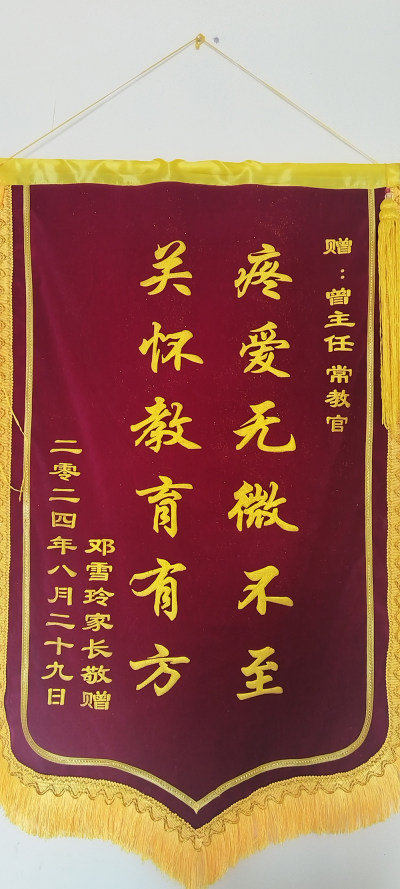 赠：曾主任 常教官
疼爱无微不至
关怀教育有方
邓雪玲家长敬赠
二零二四年八月二十九日